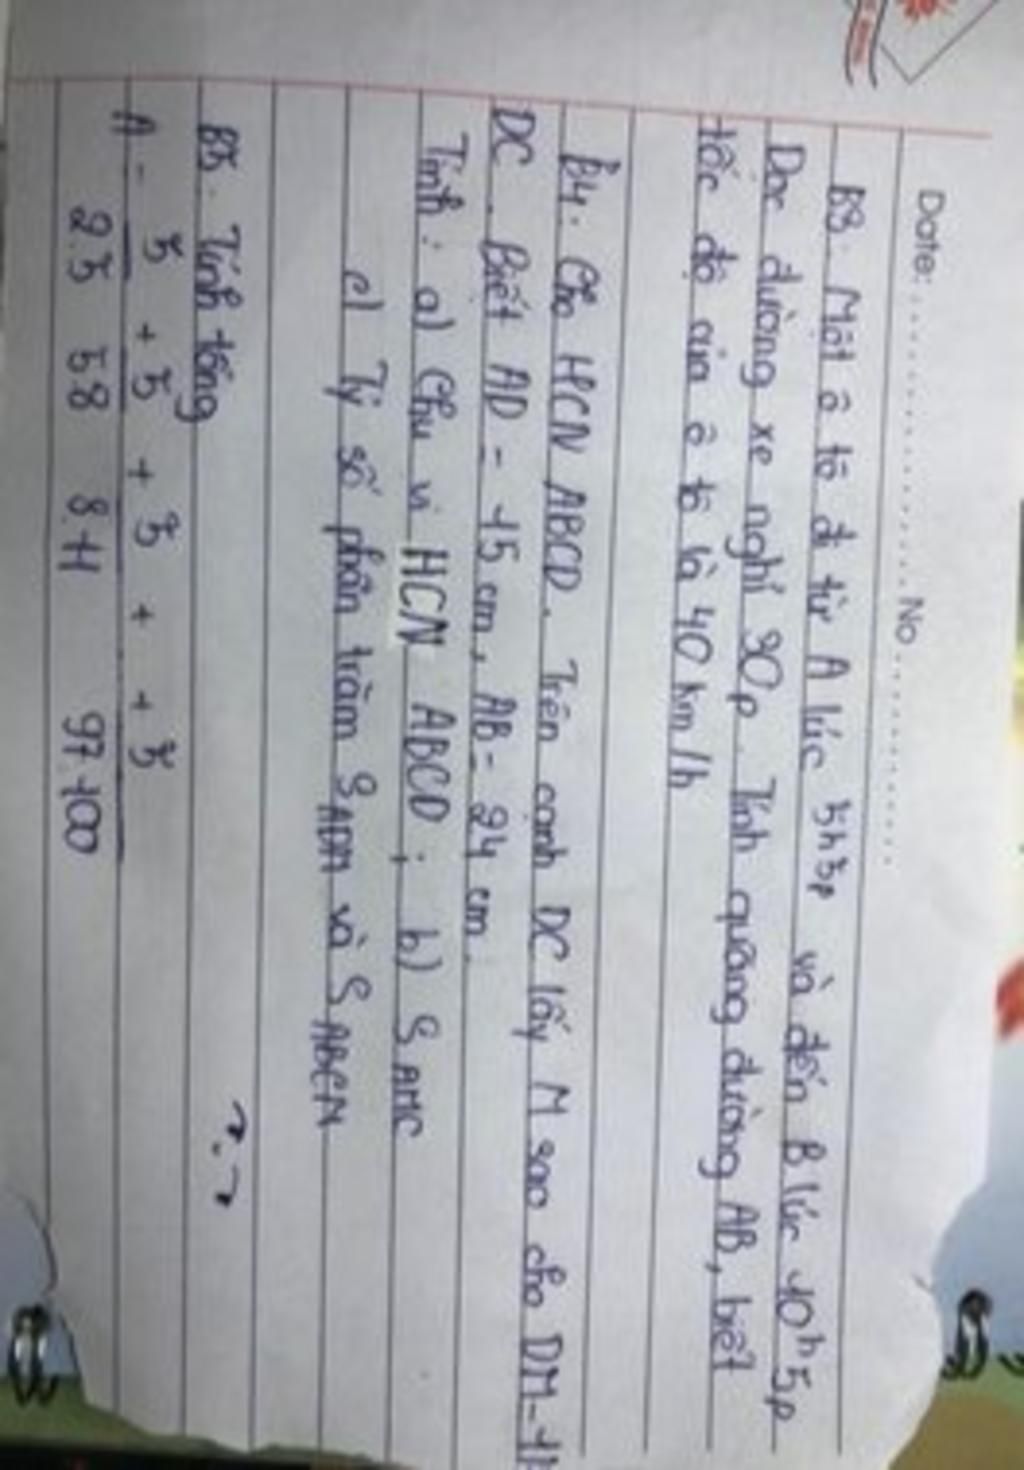 Date: ............... No ...............
B3. Một ô tô đi từ A lúc 5h5p và đến B lúc 10h5p
Dọc đường xe nghỉ 30p. Tính quãng đường AB, biết
tốc độ của ô tô là 40 km/h
B4. Cho HCN ABCD. Trên cạnh DC lấy M sao cho DM =
DC. Biết AD = 15 cm, AB = 24 cm.
Tính: a) Chu vi HCN ABCD; b) S AMC
c) Tỷ số phần trăm S ADM và S ABCM
B5. Tính tổng
A = 3 + 3 + 3 + + 3
2.5 5.8 8.11 97.100